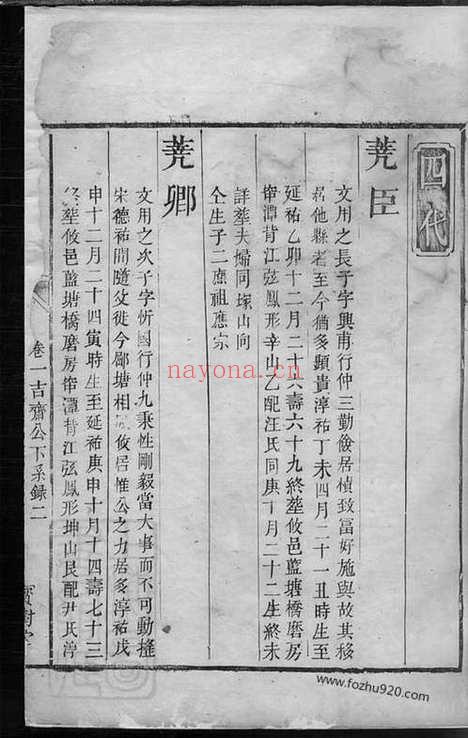 四代
蕘臣
文用之長子字興甫行仲三勤儉居積致富好施與故其移
居他縣者至今猶多顯貴淳祐丁未四月二十一丑時生至
延祐乙卯十二月二十六壽六十九終塟攸邑藍塘橋磨房
窑潭背江弦鳳形辛山乙配汪氏同庚十月二十二生終未
詳塟夫婦同塚山向
仝生子二應祖應宗
蕘卿
文用之次子字忻國行仲九秉性剛毅當大事而不可動搖
宋德祐間隨父徙今鄢塘相攸居惟公之力居多淳祐戊
申十二月二十四寅時生至延祐庚申十月十四壽七十三
終塟攸邑藍塘橋磨房窑潭背江弦鳳形坤山艮配尹氏淳
卷一吉齋公下系錄二
nayona.cn
www.fozhu920.com